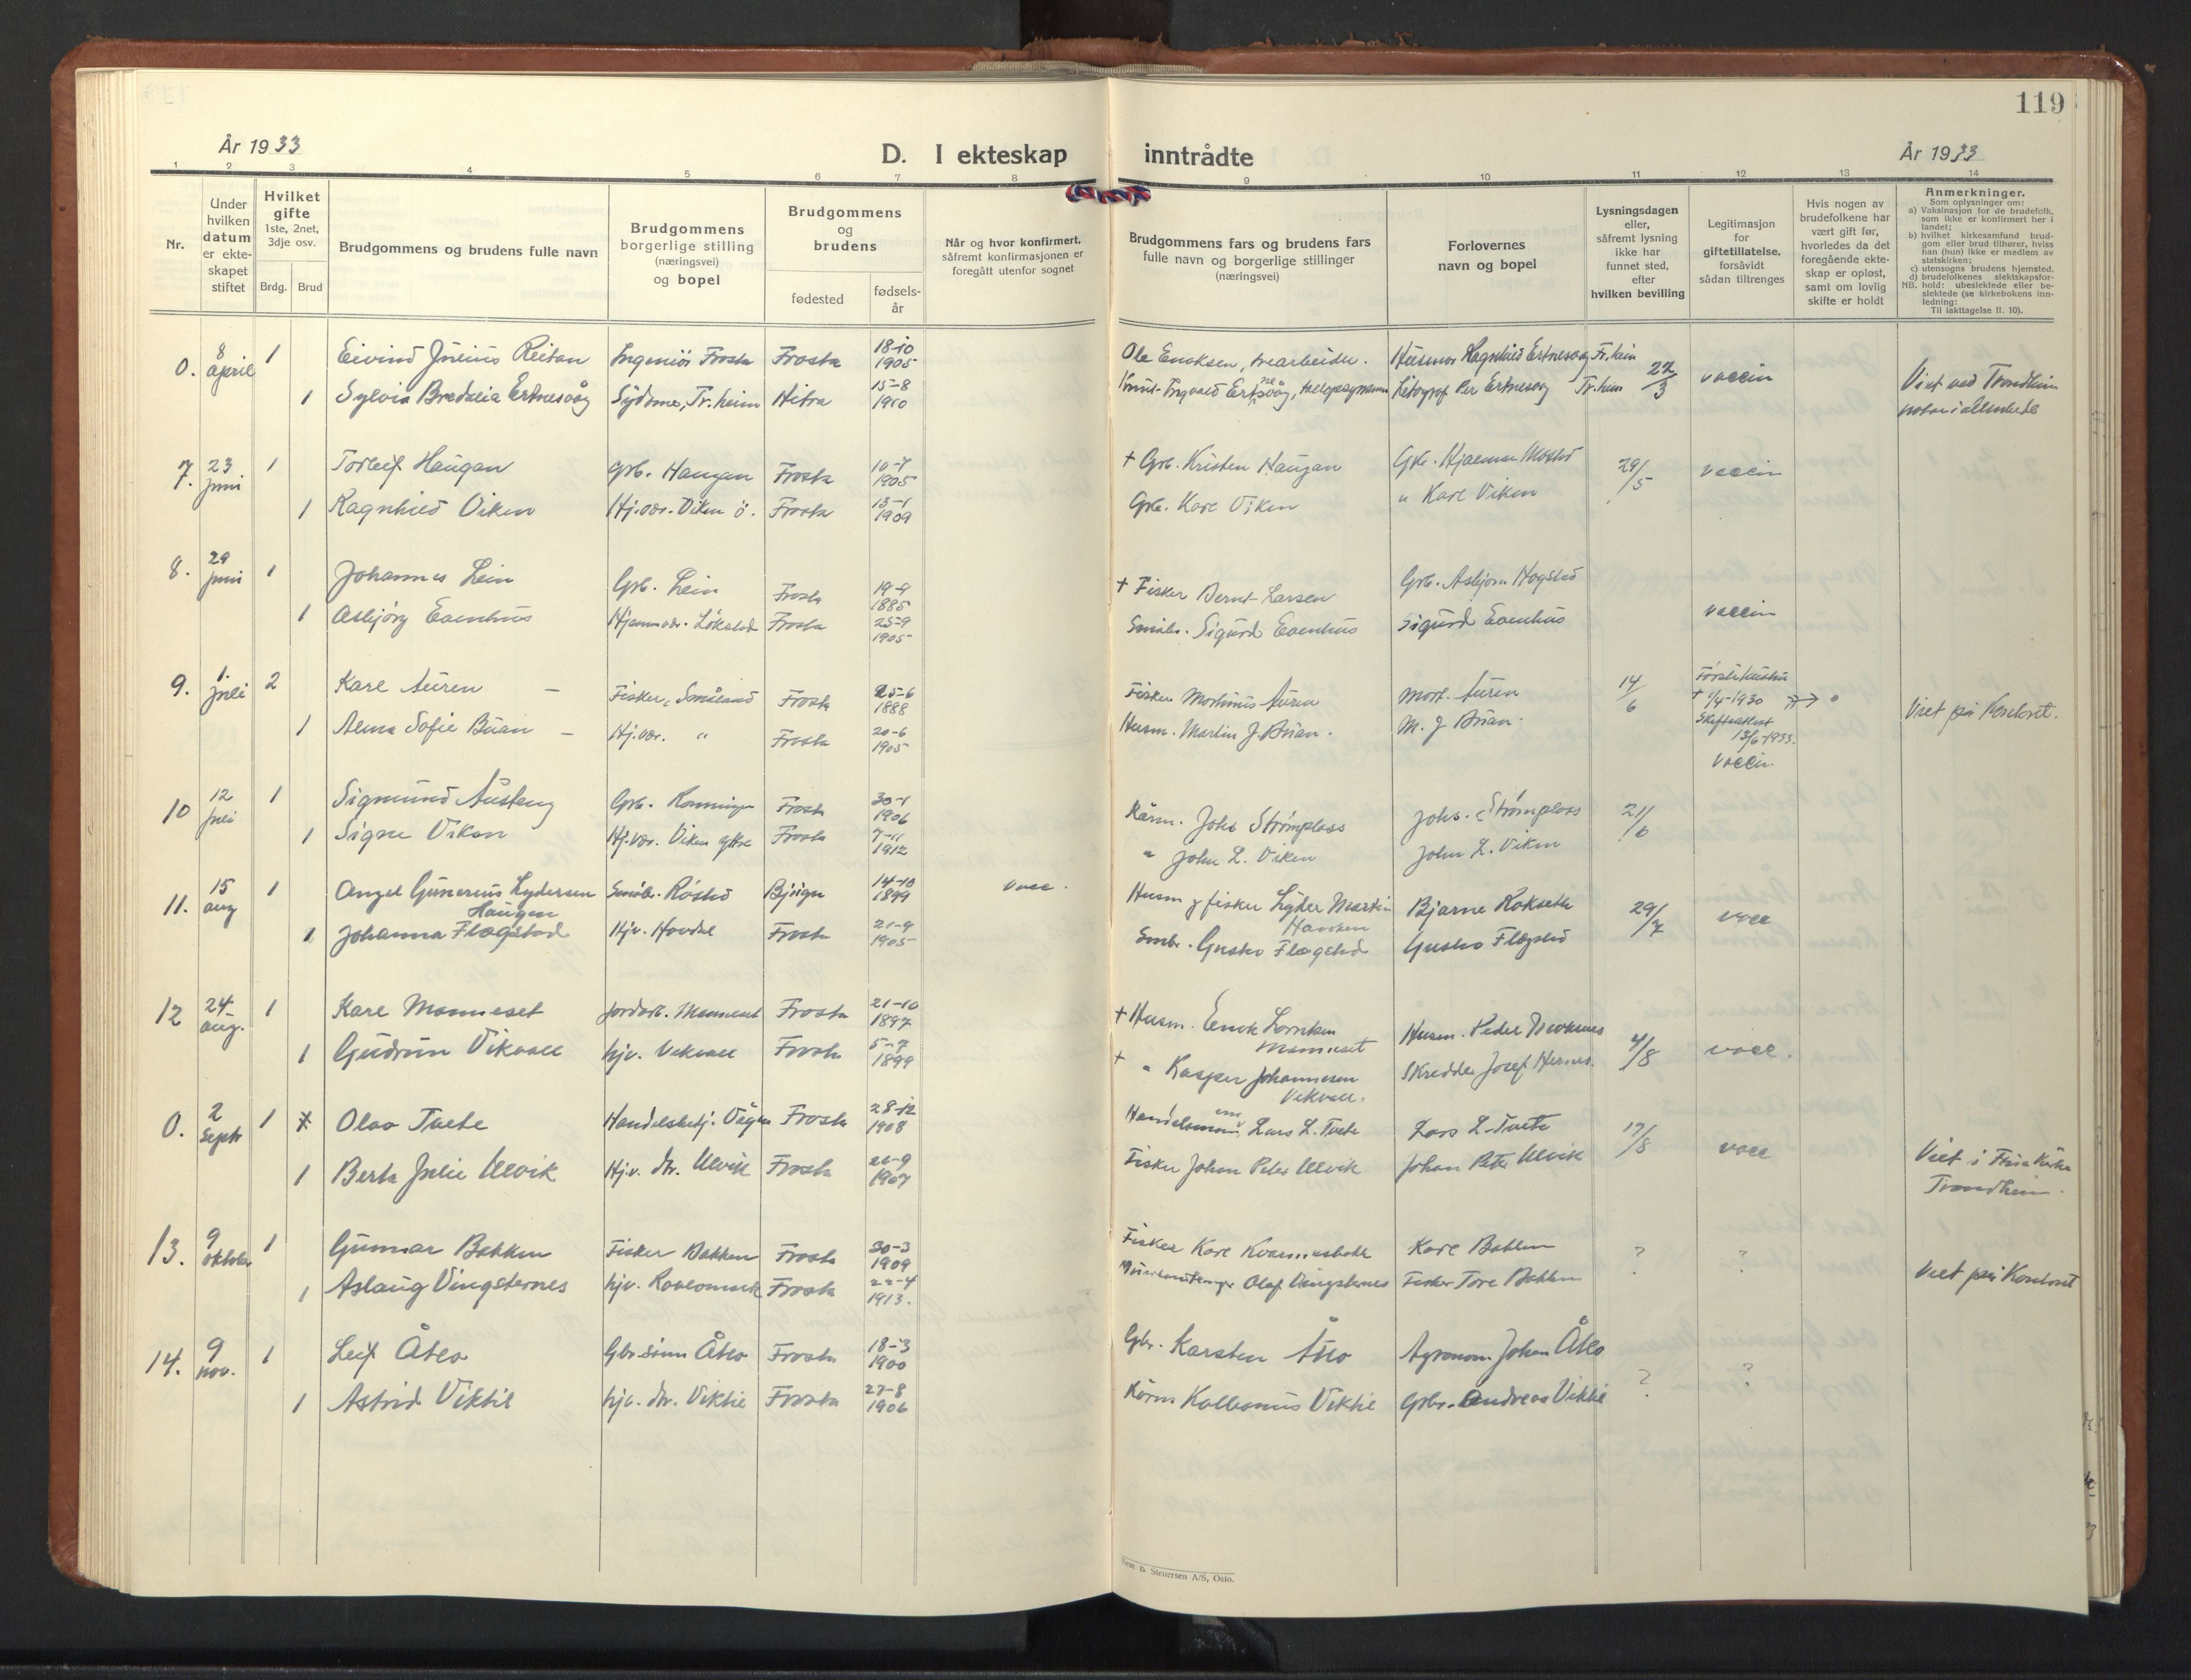 119
År 1933
D. I ekteskap inntrådte
År 1933
1 2 3 4 5 6 7 8 9 10 11 12 13 14
Nr.
Under hvilken datum er ekte-skapet stiftet
Hvilket gifte 1ste, 2net, 3dje osv.
Brdg. Brud
Brudgommens og brudens fulle navn
Brudgommens borgerlige stilling (næringsvei) og bopel
Brudgommens og brudens
fødested
fødsels-år
Når og hvor konfirmert, såfremt konfirmasjonen er foregått utenfor sognet
Brudgommens fars og brudens fars fulle navn og borgerlige stillinger (næringsvei)
Forlovernes navn og bopel
Lysningsdagen eller, såfremt lysning ikke har funnet sted, efter hvilken bevilling
Legitimasjon for giftetillatelse, forsåvidt sådan tiltrenges
Hvis nogen av brudefolkene har vært gift før, hvorledes da det foregående ekte-skap er opløst, samt om lovlig skifte er holdt
Anmerkninger.
Som oplysninger om:
a) Vaksinasjon for de brudefolk, som ikke er konfirmert her i landet;
b) hvilket kirkesamfund brud-gom eller brud tilhører, hviss han (hun) ikke er medlem av statskirken;
c) utensogns brudens hjemsted.
d) brudefolkenes slektskapsfor-hold: ubeslektede eller be-slektede (se kirkebokens inn-ledning:
NB. Til iakttagelse II. 10).
0. 8 april 1 Eivind Júlíus Reitan Ingeniør Frosta Frosta 18-10 1905 Ole Eriksen, Ragnhild Ertnesvåg Tr.heim 22/3 vaccin Viet ved Trondheim
1 Sylvia Ertnesvåg Tr.heim Hitra 15-8 1910 Per Ertnesvåg Tr.heim
7. 23 juni 1 Torleif Haugan Grb. Haugan Frosta 10-7 1905 + Grb. Kristen Haugan Grb. Hjalmar 29/5 vaccin
1 Ragnhild Viken Hj.vær. Viken ö. Frosta 13-1 1909 Grb. Karl Viken " Karl Viken
8. 29 juni 1 Johannes Lein Grb. Lein Frosta 19-9 1885 + Fisker Bernt Larsen Grb. Asbjørn Hogstad
1 Asbjørg Evenhus Frosta 25-9 1905 Småbr. Sigurd Evenhus Sigurd Evenhus vaccin
9. 1. juli 2 Karl Auren – Fisker, Småland Frosta 25-6 1888 Fisker Mortinus Auren Mort. Auren 14/6 + 1/4-1930 Viet på Kontoret.
1 Alma Sofie Buan – Hj.vær. " Frosta 20-6 1905 Husm. Martin J. Buan. M. J Buan. Skifteattest 13/6-1933. vaccin
10 12 juli 1 Sigmund Austeng Grb. Frosta 30-1 1906 Kårm. Johs Strømplass Johs. Strømplass 21/6
1 Signe Viken Hj.vær. Viken Frosta 7-11 1912 " John L. Viken John L. Viken
11. 15 aug 1 Angel Gunerius Lydersen Haugen Småbr. Røstad Bjugn 14-10 1899 vacc. Husm og fisker Lyder Martin Bjarne Kokseth 29/7 vacc
1 Johanna Flægstad Hjv. Hovdal Frosta 21-9 1905 Smbr. Gustav Flægstad Gustav Flægstad
12 24 aug. 1 Karl Manneset Manneset Frosta 21-10 1897 + Husm. Manneset Husm. Peder 4/8 vacc.
1 Gudrun Vikvall hjv. Vikvall Frosta 5-7 1899 + " Kasper Johannesen Vikvall. Skredder Josef Hernes.
0. 2 Septr 1 Olav Tvete Handelsbetj. Vågen Frosta 28-12 1908 Handelsmann Lars L. Tvete Lars L. Tvete 17/8 vacc Viet i Frie Kirke Trondheim.
1 Berta Julie Ulvik Hjv. dtr. Ulvik Frosta 26-9 1907 Fisker Johan Peter Ulvik Johan Peter Ulvik
13. 9 oktober 1 Gunnar Bakken Fisker Bakken Frosta 30-3 1909 Fisker Karl Karl Bakken ? ? Viet på Kontoret
1 Aslaug Vingsternes hjv. Frosta 22-4 1913. Olaf Vingsternes Fisker Tore Bakken
14. 9 nov. 1 Leif Åtlo Gbr.sønn Åtlo Frosta 18-3 1900 Gbr. Karsten Åtlo Agronom Johan Åtlo ? ?
1 Astrid Viktil hjv. dtr. Viktil Frosta 27-8 1906 Kårm Kolbanus Viktil Grbr. Andreas Viktil
& Steuersen A/S, Oslo.